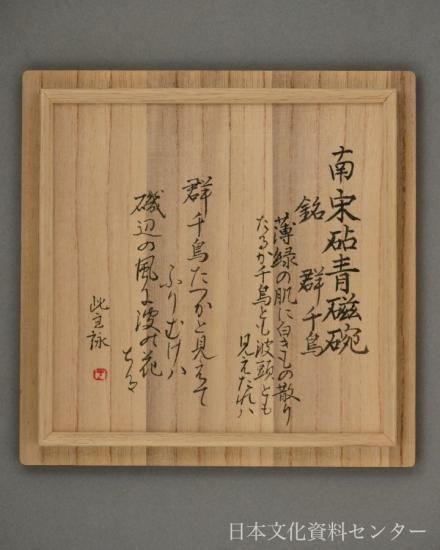 南宋砧青磁碗
銘 群千鳥
薄緑の肌に白きもの散り
たるが千鳥とも波頭とも
見えたれハ
群千鳥たつかと見えて
ふりむけハ
磯辺の風に波の花
ちる
此主詠
日本文化資料センター